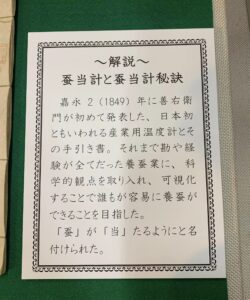 ～解説～
蚕当計と蚕当計秘訣
嘉永2（1849）年に善右衛
門が初めて発表した、日本初
ともいわれる産業用温度計とそ
の手引き書。それまで勘や経
験が全てだった養蚕業に、科
学的観点を取り入れ、可視化
することで誰もが容易に養蚕が
できることを目指した。
「蚕」が「当」たるようにと名
付けられた。